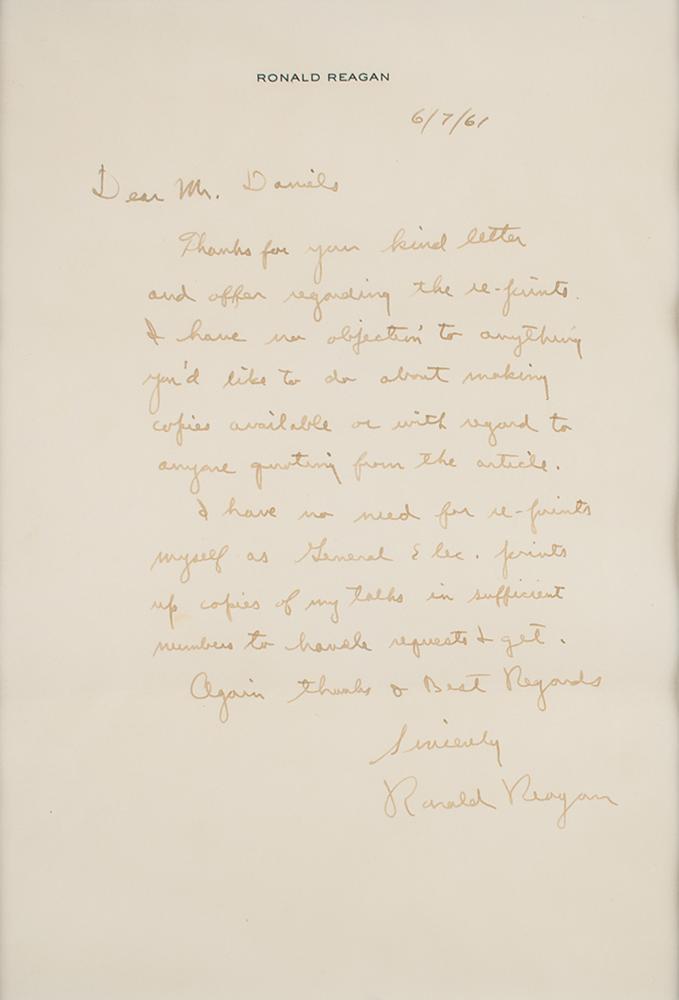 RONALD REAGAN
6/7/61
Dear Mr. Daniels
Thanks for your kind letter
and offer regarding the re-prints.
I have no objection to anything
you'd like to do about making
copies available or with regard to
anyone quoting from the article.
I have no need for re-prints
myself as General Elec. prints
up copies of my talks in sufficient
numbers to handle requests I get.
Again thanks & Best Regards
Sincerely
Ronald Reagan